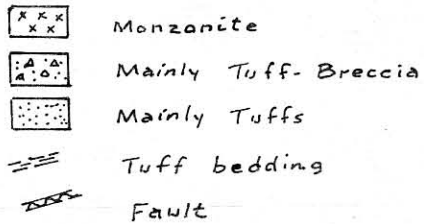 Monzonite
Mainly Tuff-Breccia
Mainly Tuffs
Tuff bedding
Fault